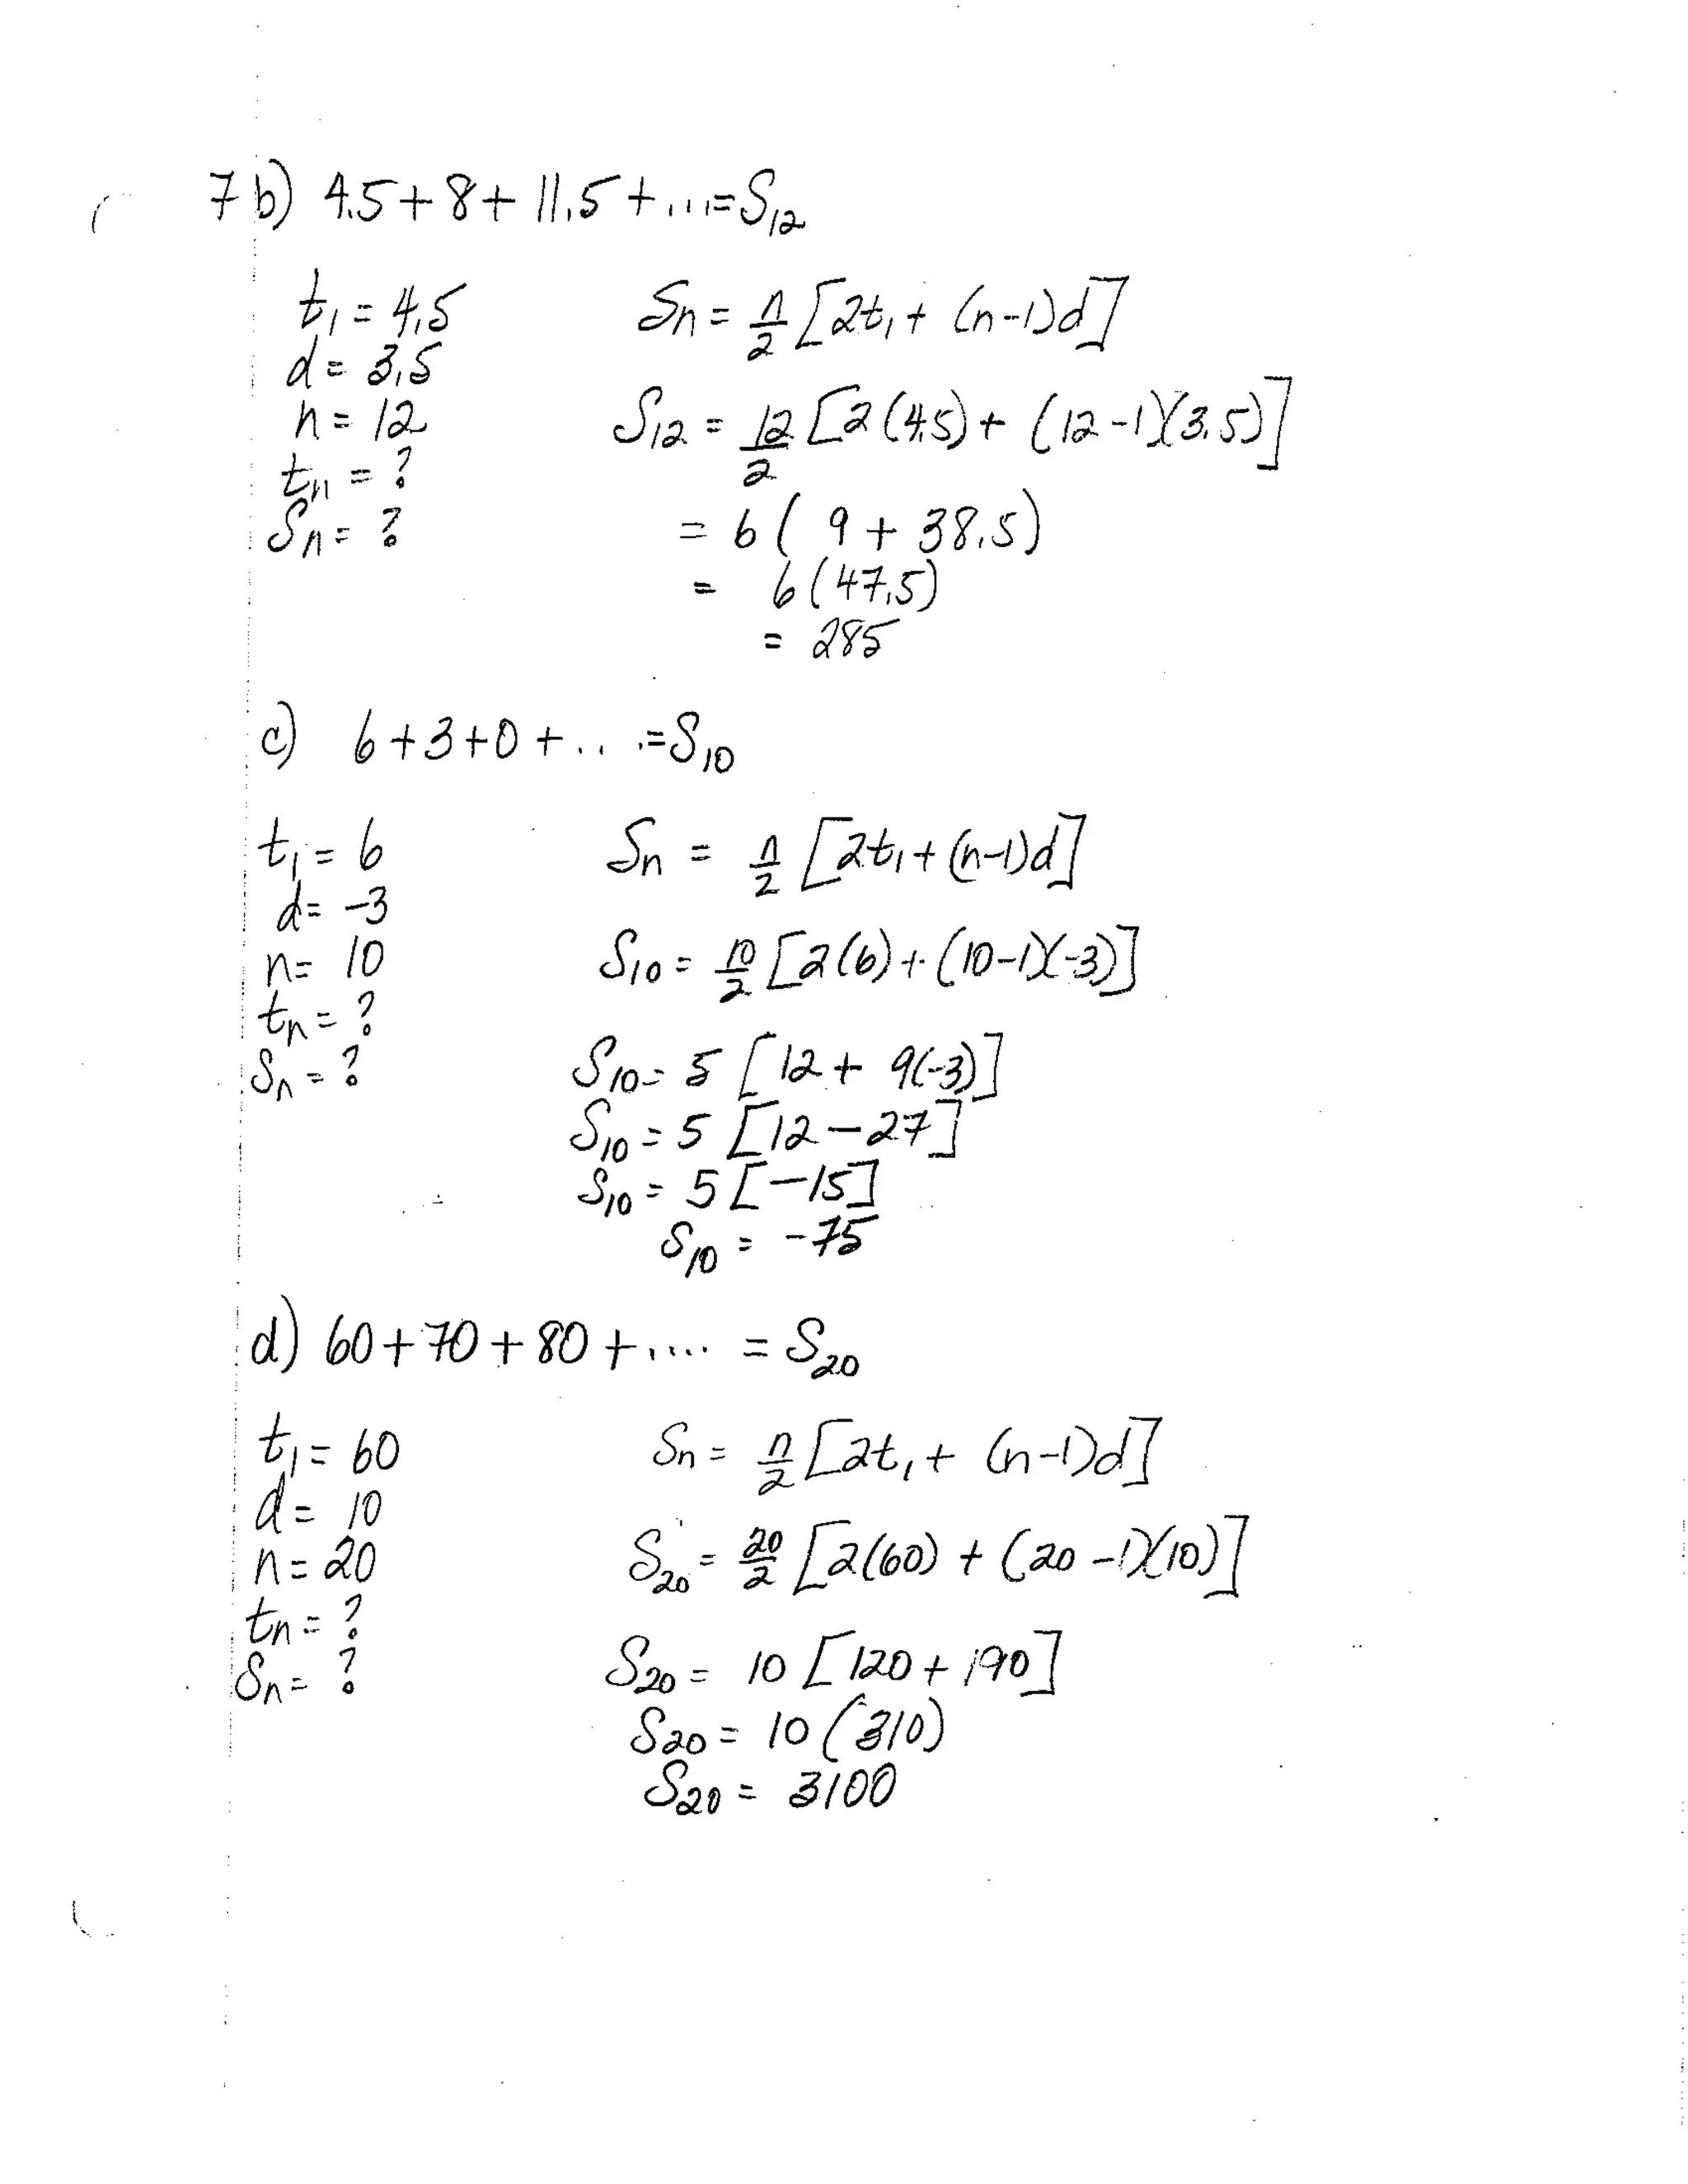 7b) 4.5 + 8 + 11.5 + .... = S₁₂
t₁ = 4.5
d = 3.5
n = 12
tn = ?
Sn = ?
Sn = n/2 [2t₁ + (n-1)d]
S₁₂ = 12/2 [2(4.5) + (12-1)(3.5)]
= 6( 9 + 38.5)
= 6(47.5)
= 285
c) 6 + 3 + 0 + .... = S₁₀
t₁ = 6
d = -3
n = 10
tn = ?
Sn = ?
Sn = n/2 [2t₁ + (n-1)d]
S₁₀ = 10/2 [2(6) + (10-1)(-3)]
S₁₀ = 5 [12 + 9(-3)]
S₁₀ = 5 [12 - 27]
S₁₀ = 5 [-15]
S₁₀ = -75
d) 60 + 70 + 80 + ..... = S₂₀
t₁ = 60
d = 10
n = 20
tn = ?
Sn = ?
Sn = n/2 [2t₁ + (n-1)d]
S₂₀ = 20/2 [2(60) + (20-1)(10)]
S₂₀ = 10 [120 + 190]
S₂₀ = 10 (310)
S₂₀ = 3100